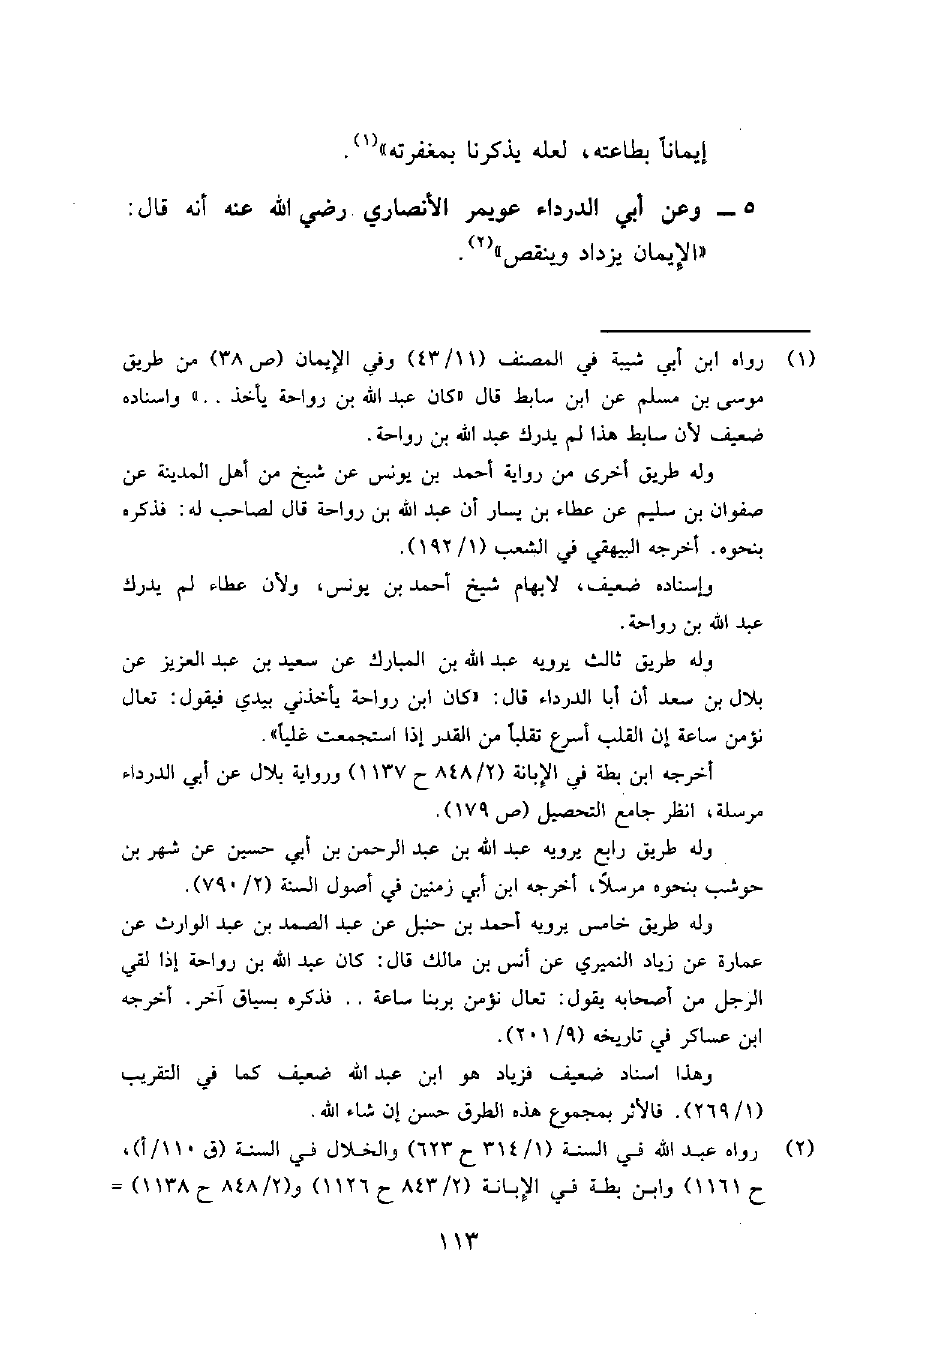 إيماناً بطاعته، لعله يذكرنا بمغفرته»(١).
٥ ـ وعن أبي الدرداء عويمر الأنصاري رضي الله عنه أنه قال:
«الإيمان يزداد وينقص»(٢).
(١) رواه ابن أبي شيبة في المصنف (٤٣/١١) وفي الإيمان (ص ٣٨) من طريق
موسى بن مسلم عن ابن سابط قال «كان عبد الله بن رواحة يأخذ ..» واسناده
ضعيف لأن سابط هذا لم يدرك عبد الله بن رواحة.
وله طريق أخرى من رواية أحمد بن يونس عن شيخ من أهل المدينة عن
صفوان بن سليم عن عطاء بن يسار أن عبد الله بن رواحة قال لصاحب له: فذكره
بنحوه. أخرجه البيهقي في الشعب (١/ ١٩٢).
وإسناده ضعيف، لابهام شيخ أحمد بن يونس، ولأن عطاء لم يدرك
عبد الله بن رواحة.
وله طريق ثالث يرويه عبد الله بن المبارك عن سعيد بن عبد العزيز عن
بلال بن سعد أن أبا الدرداء قال: «كان ابن رواحة يأخذني بيدي فيقول: تعال
نؤمن ساعة إن القلب أسرع تقلباً من القدر إذا استجمعت غلياً».
أخرجه ابن بطة في الإبانة (٨٤٨/٢ ح ١١٣٧) ورواية بلال عن أبي الدرداء
مرسلة، انظر جامع التحصيل (ص ١٧٩).
وله طريق رابع يرويه عبد الله بن عبد الرحمن بن أبي حسين عن شهر بن
حوشب بنحوه مرسلاً، أخرجه ابن أبي زمنين في أصول السنة (٢/ ٧٩٠).
وله طريق خامس يرويه أحمد بن حنبل عن عبد الصمد بن عبد الوارث عن
عمارة عن زياد النميري عن أنس بن مالك قال: كان عبد الله بن رواحة إذا لقي
الرجل من أصحابه يقول: تعال نؤمن بربنا ساعة .. فذكره بسياق آخر. أخرجه
ابن عساكر في تاريخه (٩/ ٢٠١).
وهذا اسناد ضعيف فزياد هو ابن عبد الله ضعيف كما في التقريب
(١/ ٢٦٩). فالأثر بمجموع هذه الطرق حسن إن شاء الله.
(٢) رواه عبد الله في السنة (١/ ٣١٤ ح ٦٢٣) والخلال في السنة (ق ١١٠/أ)،
ح ١١٦١) وابن بطة في الإبانة (٢/ ٨٤٣ ح ١١٢٦) و(٢/ ٨٤٨ ح ١١٣٨) =
١١٣